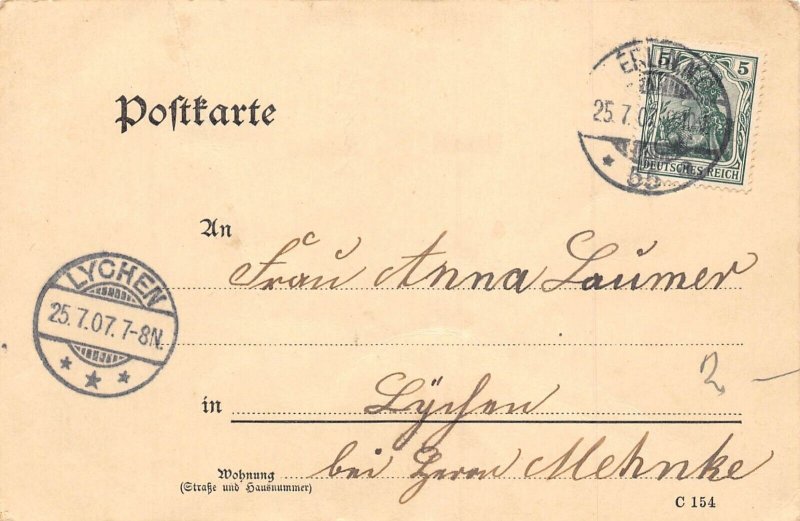 5 5
BERLIN N.
25.7.07
* 58
DEUTSCHES REICH
Postkarte
An
Frau Anna Laumer
LYCHEN
25.7.07. 7-8N.
* * *
in Lÿchen
bei Herrn Mehnke
Wohnung
(Straße und Hausnummer)
2
C 154